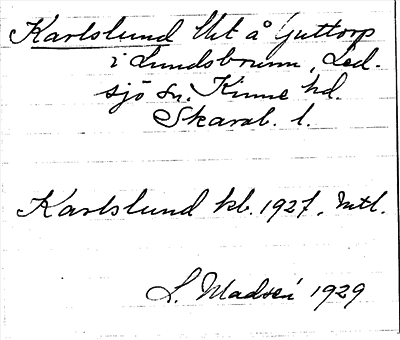 Karlslund lht å Guttorp
i Lundsbrunn, Led-
sjö sn. Kinne hd.
Skarab. l.
Karlslund kb. 1927, mtl.
L. Madsén 1929